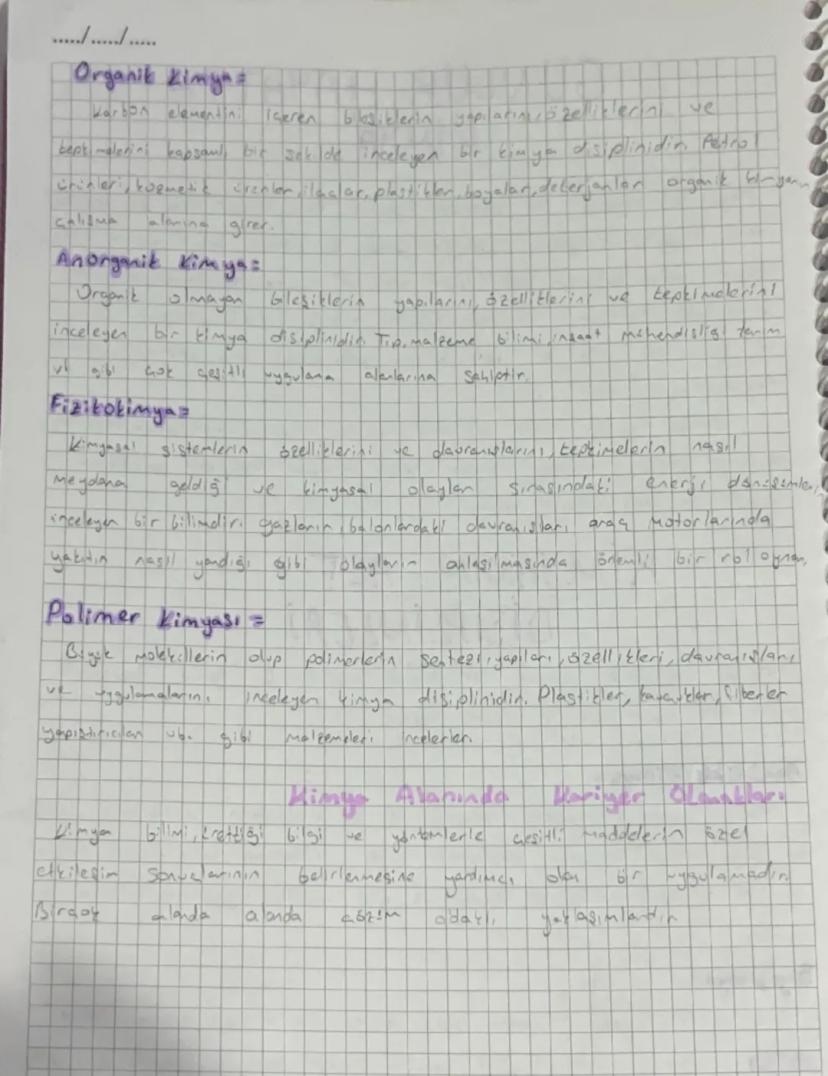 ...../...../.....
Organik Kimya=
Karbon elementini içeren bileşiklerin yapılarını, özelliklerini ve
tepkimelerini kapsamlı bir şekilde inceleyen bir kimya disiplinidir. Petrol
ürünleri, kozmetik ürünler, ilaçlar, plastikler, boyalar, deterjanlar organik kimyanın
çalışma alanına girer.
Anorganik Kimya=
Organik olmayan bileşiklerin yapılarını, özelliklerini ve tepkimelerini
inceleyen bir kimya disiplinidir. Tıp, malzeme bilimi, inşaat mühendisliği tarım
vb gibi çok çeşitli uygulama alanlarına sahiptir.
Fizikokimya=
Kimyasal sistemlerin özelliklerini ve davranışlarını, tepkimelerin nasıl
meydana geldiği ve kimyasal olayları sırasındaki enerji dönüşümleri
inceleyen bir bilimdir. gazların, balonlardaki davranışları, araç motorlarında
yakıtın nasıl yandığı gibi olayların anlaşılmasında önemli bir rol oynar.
Polimer Kimyası=
Büyük moleküllerin olup polimerlerin sentezi, yapıları, özellikleri, davranışları
ve uygulamalarını inceleyen kimya disiplinidir. Plastikler, kauçuklar, fiberler
yapıştırıcılar vb. gibi malzemeleri incelerler.
Kimya Alanında Kariyer Olanakları
Kimya bilimi, ürettiği bilgi ve yöntemlerle çeşitli maddelerin özel
etkileşim sonuçlarının belirlenmesine yardımcı olan bir uygulamadır
Birçok alanda alanda çözüm odaklı yaklaşımlardır